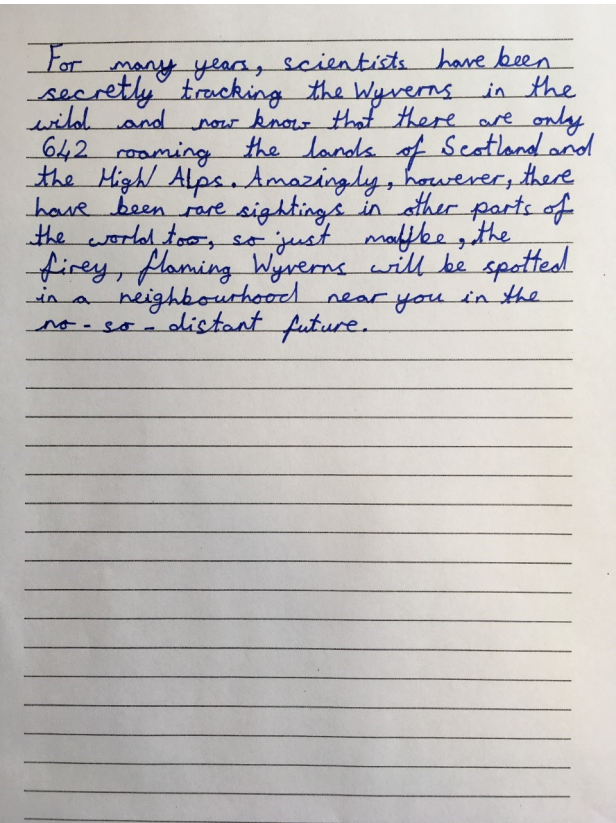 For many years, scientists have been
secretly tracking the Wyverns in the
wild and now know that there are only
642 roaming the lands of Scotland and
the High Alps. Amazingly, however, there
have been rare sightings in other parts of
the world too, so just maybe, the
firey, flaming Wyverns will be spotted
in a neighbourhood near you in the
no-so-distant future.